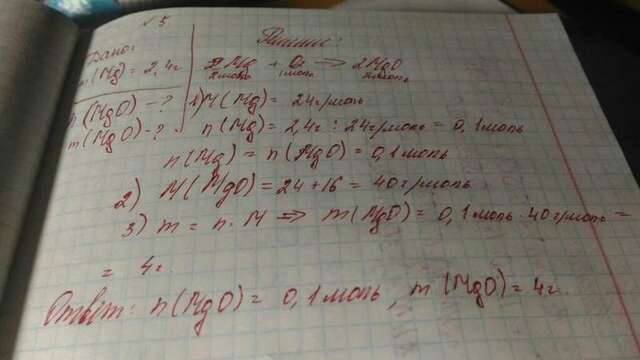 №5
Дано:
m(Mg) = 2,4г
n(MgO) - ?
m(MgO) - ?
Решение:
2Mg + O₂ → 2MgO
2моль 1моль 2моль
1) M(Mg) = 24г/моль
n(Mg) = 2,4г : 24г/моль = 0,1моль
n(Mg) = n(MgO) = 0,1моль
2) M(MgO) = 24 + 16 = 40г/моль
3) m = n · M ⇒ m(MgO) = 0,1моль · 40г/моль =
= 4г.
Ответ: n(MgO) = 0,1моль, m(MgO) = 4г.